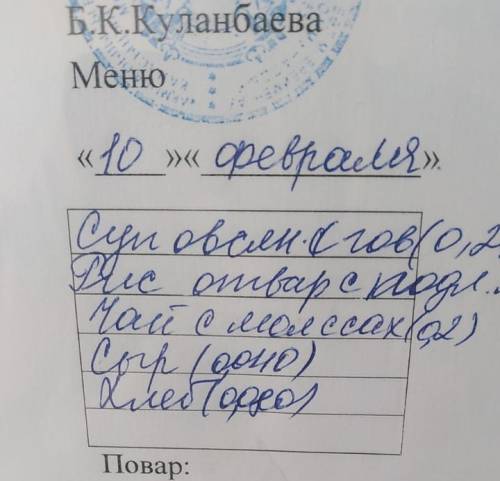 Б.К.Куланбаева
Меню
«10»«февраля».
Суп овсян. с гов (0,2
Рис отвар с подл.
Чай с м (0,2)
Сыр (0,040)
Хлеб
Повар: